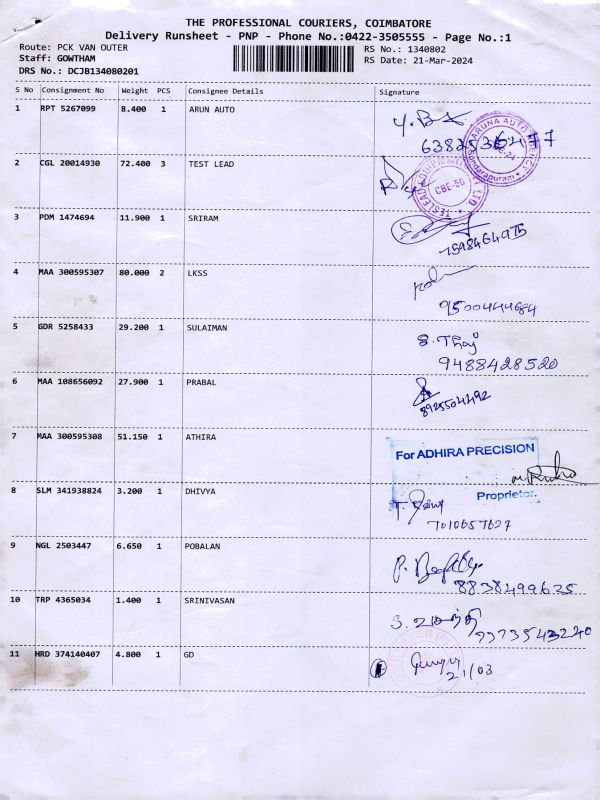 THE PROFESSIONAL COURIERS, COIMBATORE
Delivery Runsheet - PNP - Phone No.:0422-3505555 - Page No.:1
Route: PCK VAN OUTER
RS No.: 1340802
Staff: GOWTHAM
RS Date: 21-Mar-2024
DRS No.: DCJB134080201
S No Consignment No Weight PCS Consignee Details Signature
1 RPT 5267099 8.400 1 ARUN AUTO
2 CGL 20014930 72.400 3 TEST LEAD
CBE-50
3 PDM 1474694 11.900 1 SRIRAM
7598464975
4 MAA 300595307 80.000 2 LKSS
9500444684
5 GDR 5258433 29.200 1 SULAIMAN
9488428520
6 MAA 108656092 27.900 1 PRABAL
8925504492
7 MAA 300595308 51.150 1 ATHIRA
For ADHIRA PRECISION
Proprietor.
8 SLM 341938824 3.200 1 DHIVYA
7010657627
9 NGL 2503447 6.650 1 POBALAN
8838499625
10 TRP 4365034 1.400 1 SRINIVASAN
11 HRD 374140407 4.800 1 GD
21/03